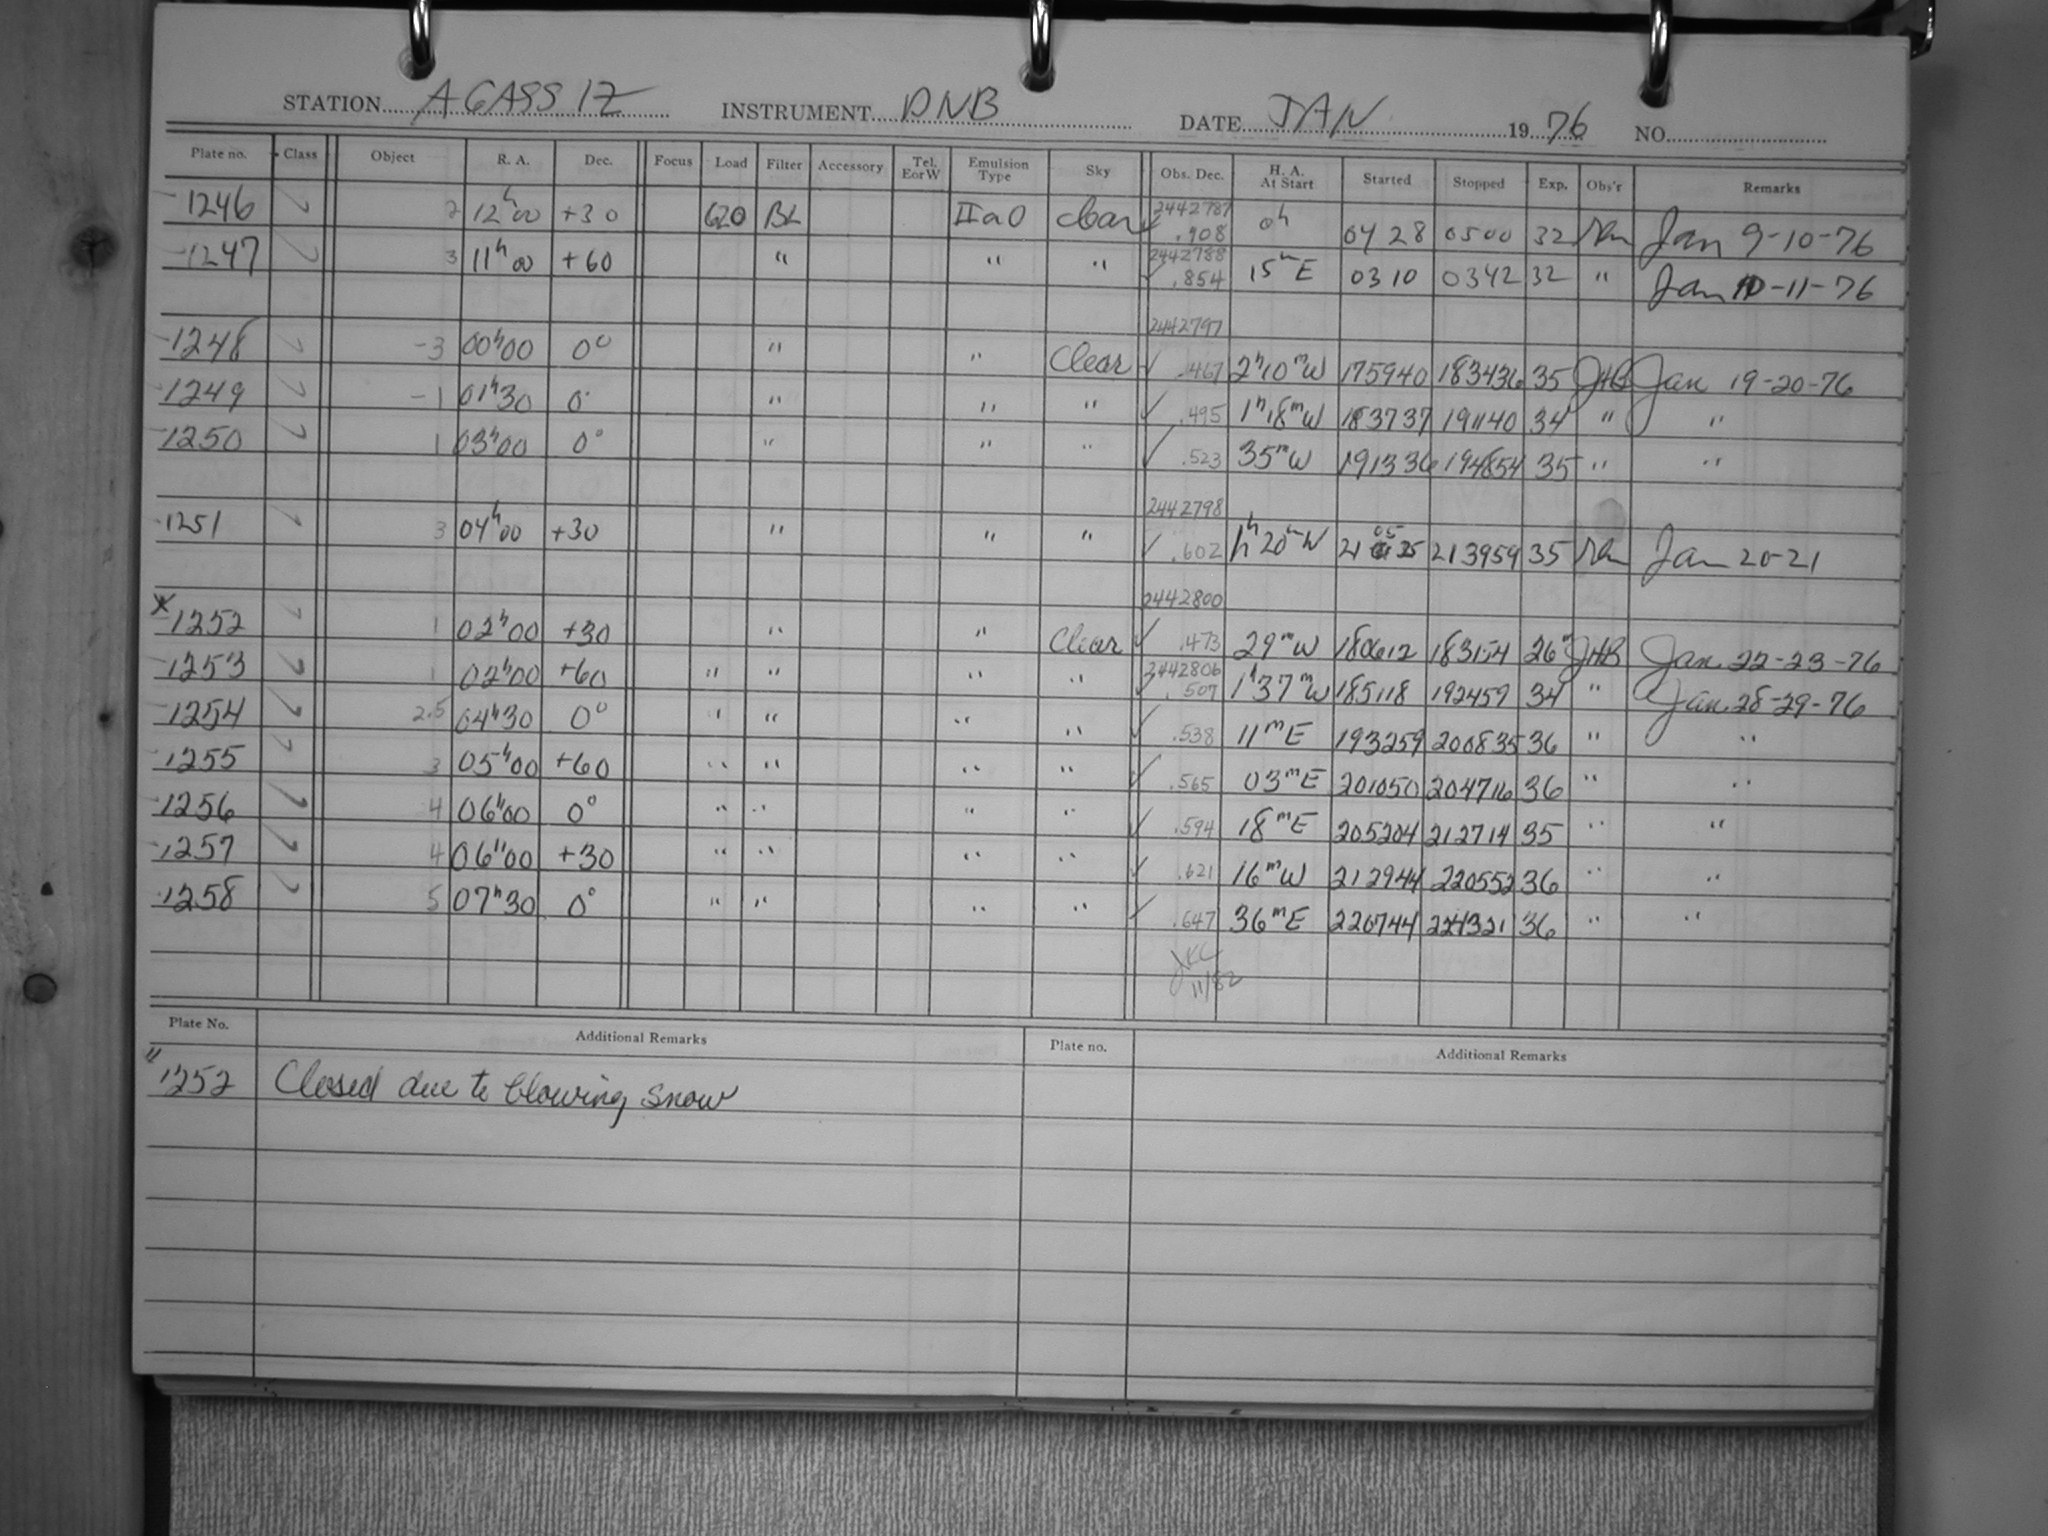 STATION AGASSIZ INSTRUMENT DNB DATE JAN 1976 NO.
Plate no. Class Object R. A. Dec. Focus Load Filter Accessory Tel. E or W Emulsion Type Sky Obs. Dec. H. A. At Start Started Stopped Exp. Obs'r Remarks
1246 2 12h00 +30 620 BL IIaO clear 2442787 .908 0h 04 28 05 00 32 Jan 9-10-76
1247 3 11h00 +60 " " " 2442788 .854 15m E 03 10 03 42 32 " Jan 10-11-76
2442797
1248 -3 00h00 0° " " Clear .467 2h10m W 175940 183436 35 JHB Jan 19-20-76
1249 -1 01h30 0° " " " .495 1h18m W 183737 191140 34 " "
1250 1 03h00 0° " " " .523 35m W 191336 194854 35 " "
2442798
1251 3 04h00 +30 " " " .602 1h20m W 21 05 25 213959 35 Jan 20-21
2442800
x 1252 1 02h00 +30 " " Clear .473 29m W 180612 183154 26m JHB Jan. 22-23-76
1253 1 02h00 +60 " " " " 2442806 .507 1h37m W 185118 192459 34 " Jan. 28-29-76
1254 2.5 04h30 0° " " " " .538 11m E 193259 200835 36 " "
1255 3 05h00 +60 " " " " .565 03m E 201050 204716 36 " "
1256 4 06h00 0° " " " " .594 18m E 205204 212714 35 " "
1257 4 06h00 +30 " " " " .621 16m W 212944 220552 36 " "
1258 5 07h30 0° " " " " .647 36m E 220744 224321 36 " "
JKC
11/82
Plate No. Additional Remarks Plate no. Additional Remarks
1252 Closed due to blowing snow